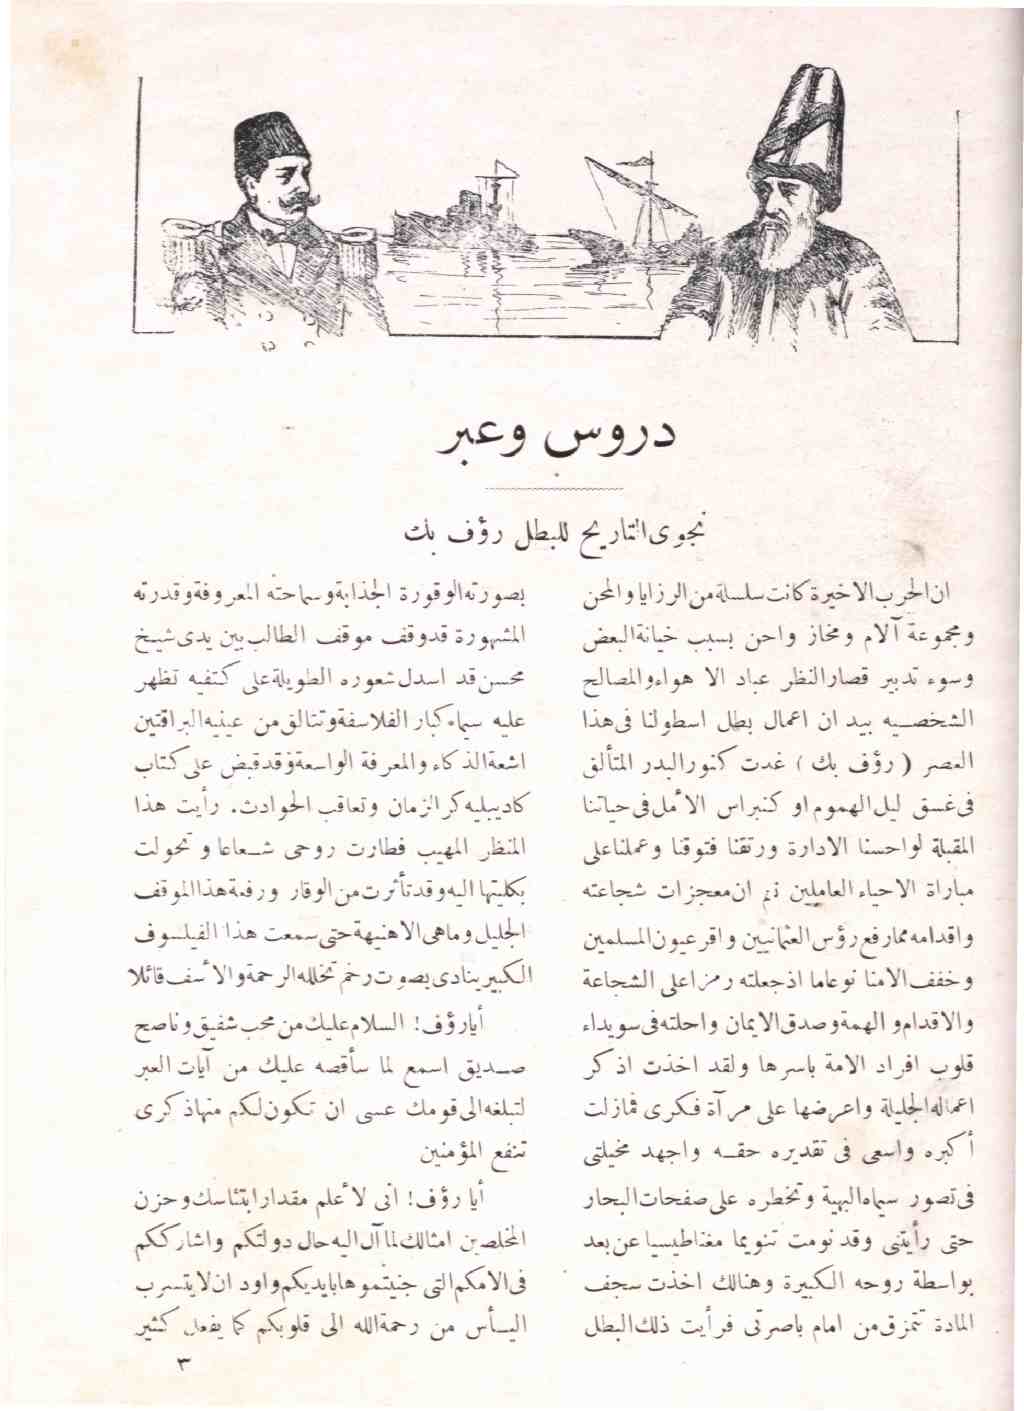 دروس وعبر
نجوى التاريخ للبطل رؤف بك
ان الحرب الاخيرة كانت سلسلة من الرزايا والمحن
ومجموعة آلام ومخاز واحن بسبب خيانة البعض
وسوء تدبير قصار النظر عباد الا هواء والمصالح
الشخصيه بيد ان اعمال بطل اسطولنا فى هذا
العصر ( رؤف بك ) غدت كنور البدر المتألق
فى غسق ليل الهموم او كنبراس الأمل فى حياتنا
المقبلة لو احسنا الادارة ورتقنا فتوقنا وعملنا على
مباراة الاحياء العاملين نعم ان معجزات شجاعته
واقدامه مما رفع رؤس العثمانيين واقر عيون المسلمين
وخفف الامنا نوعا ما اذ جعلته رمزا على الشجاعة
والاقدام و الهمة وصدق الايمان واحلته فى سويداء
قلوب افراد الامة باسرها ولقد اخذت اذكر
اعماله الجليلة واعرضها على مرآة فكرى فمازلت
أكبره واسعى فى تقديره حقه واجهد مخيلتى
فى تصور سيماه البهية وتخطره على صفحات البحار
حتى رأيتنى وقد نومت تنويما مغناطيسيا عن بعد
بواسطة روحه الكبيرة وهنالك اخذت سجف
المادة تتمزق من امام باصرتى فرأيت ذلك البطل
بصورته الوقورة الجذابة وسماحته المعروفة وقدرته
المشهورة قد وقف موقف الطالب بين يدى شيخ
محسن قد اسدل شعوره الطويلة على كتفيه تظهر
عليه سيماء كبار الفلاسفة وتتالق من عينيه البراقتين
اشعة الذكاء والمعرفة الواسعة وقد قبض على كتاب
كاد يبليه كر الزمان وتعاقب الحوادث. رأيت هذا
المنظر المهيب فطارت روحى شعاعا و تحولت
بكليتها اليه وقد تأثرت من الوقار ورفعة هذا الموقف
الجليل وماهى الا هنيهة حتى سمعت هذا الفيلسوف
الكبير ينادى بصوت رخم تخلله الرحمة والأسف قائلا
أيا رؤف! السلام عليك من محب شفيق وناصح
صديق اسمع لما سأقصه عليك من آيات العبر
لتبلغه الى قومك عسى ان تكون لكم منها ذكرى
تنفع المؤمنين
أيا رؤف! انى لأعلم مقدار ابتئاسك وحزن
المخلصين امثالك لما آل اليه حال دولتكم واشارككم
فى الامكم التى جنيتموها بايديكم واود ان لا يتسرب
اليأس من رحمة الله الى قلوبكم كما يفعل كثير
٣